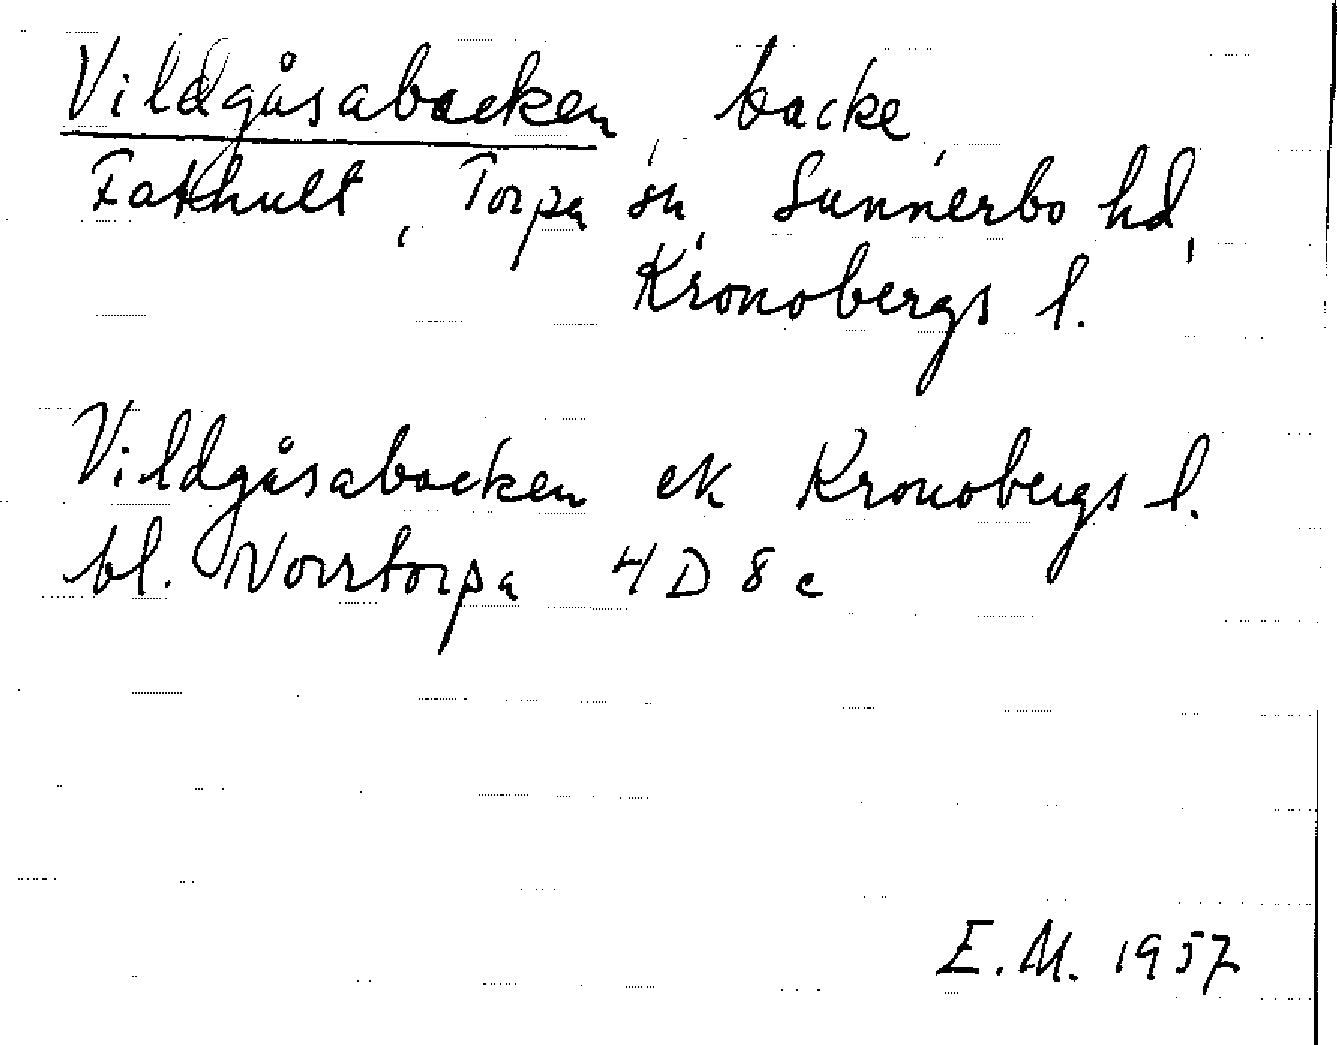 Vildgåsabacken, backe,
Fathult, Torpa sn, Sunnerbo hd,
Kronobergs l.
Vildgåsabacken ek Kronobergs l.
bl. Norrtorpa 4 D 8 c
E.M. 1957